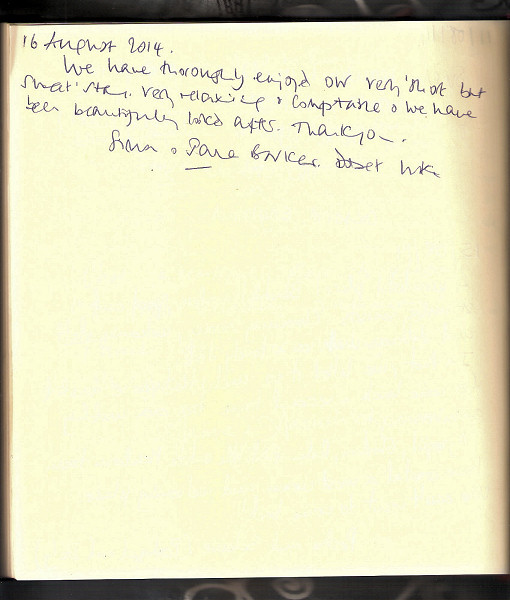 16 August 2014.
We have thoroughly enjoyed our very 'short but
sweet' stay. Very relaxing & comfortable & we have
been beautifully looked after. Thankyou.
& Barker.